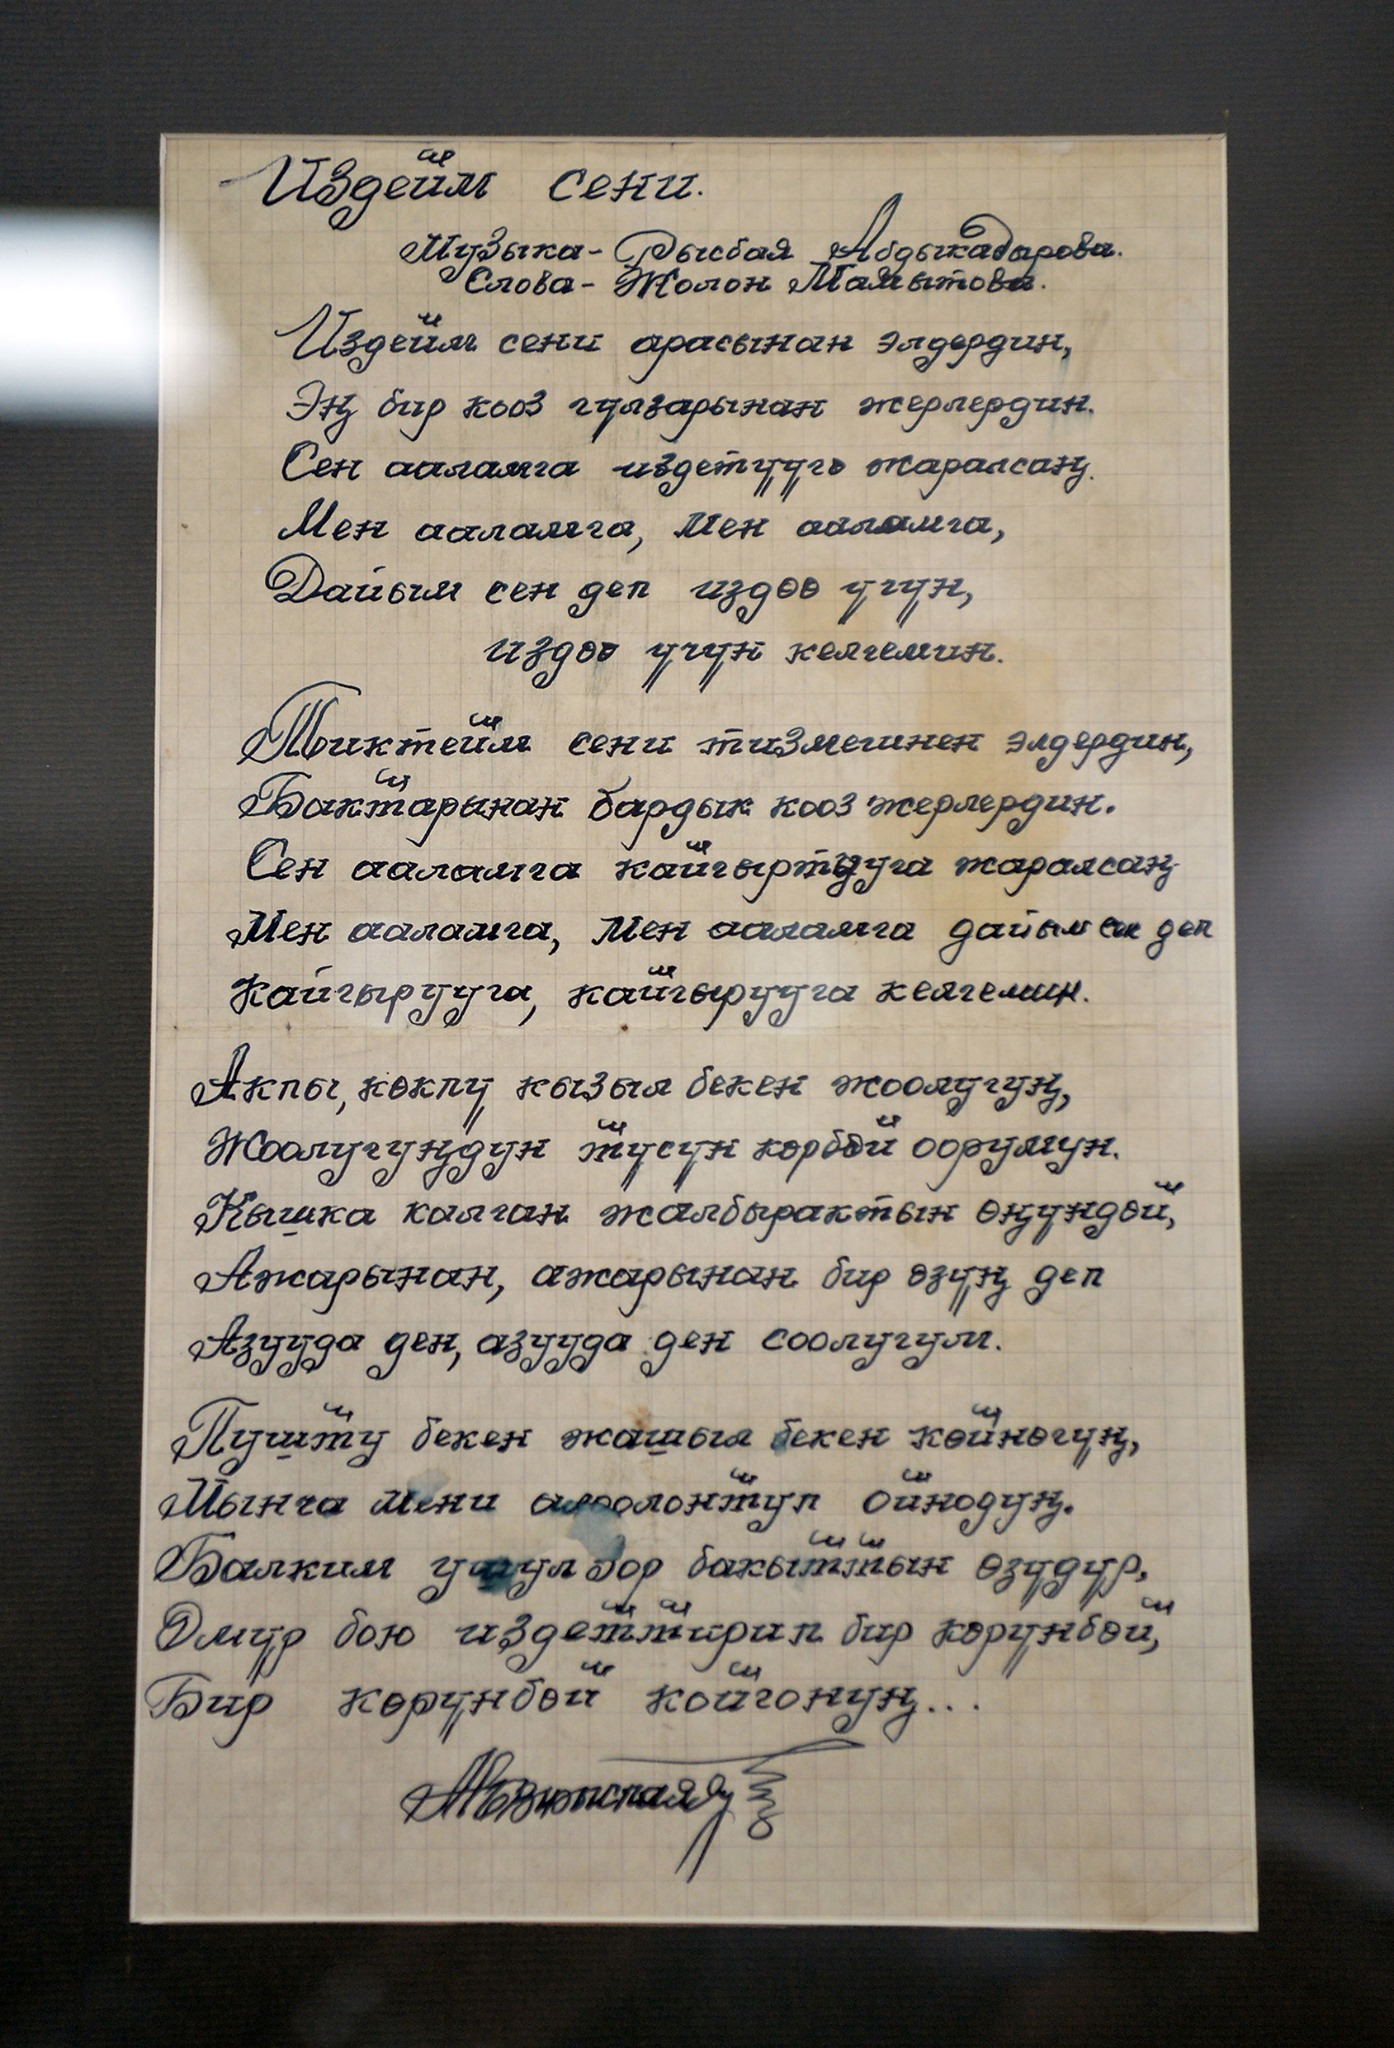 Издейм сени.
Музыка - Рысбая Абдыкадырова.
Слова - Жолон Мамытова.
Издейм сени арасынан элдердин,
Эң бир кооз гүлзарынан жерлердин.
Сен ааламга издетүүгө жаралсаң.
Мен ааламга, мен ааламга,
Дайым сен деп издөө үчүн,
издөө үчүн келгемин.
Тиктейм сени тизмегинен элдердин,
Бактарынан бардык кооз жерлердин.
Сен ааламга кайгыртууга жаралсаң
Мен ааламга, мен ааламга дайым сен деп
Кайгырууга, кайгырууга келгемин.
Акпы, көкпү кызыл бекен жоолугуң,
Жоолугуңдун түсүн көрбөй оорумун.
Кышка калган жалбырактын өңүндөй,
Ажарынан, ажарынан бир өзүң деп
Азууда ден, азууда ден соолугум.
Пушту бекен жашыл бекен көйнөгүң,
Мынча мени алоолонтуп ойнодуң.
Балким ушул зор бакыттын өзүдүр,
Өмүр бою издеттирип бир көрүнбөй,
Бир көрүнбөй койгонуң...